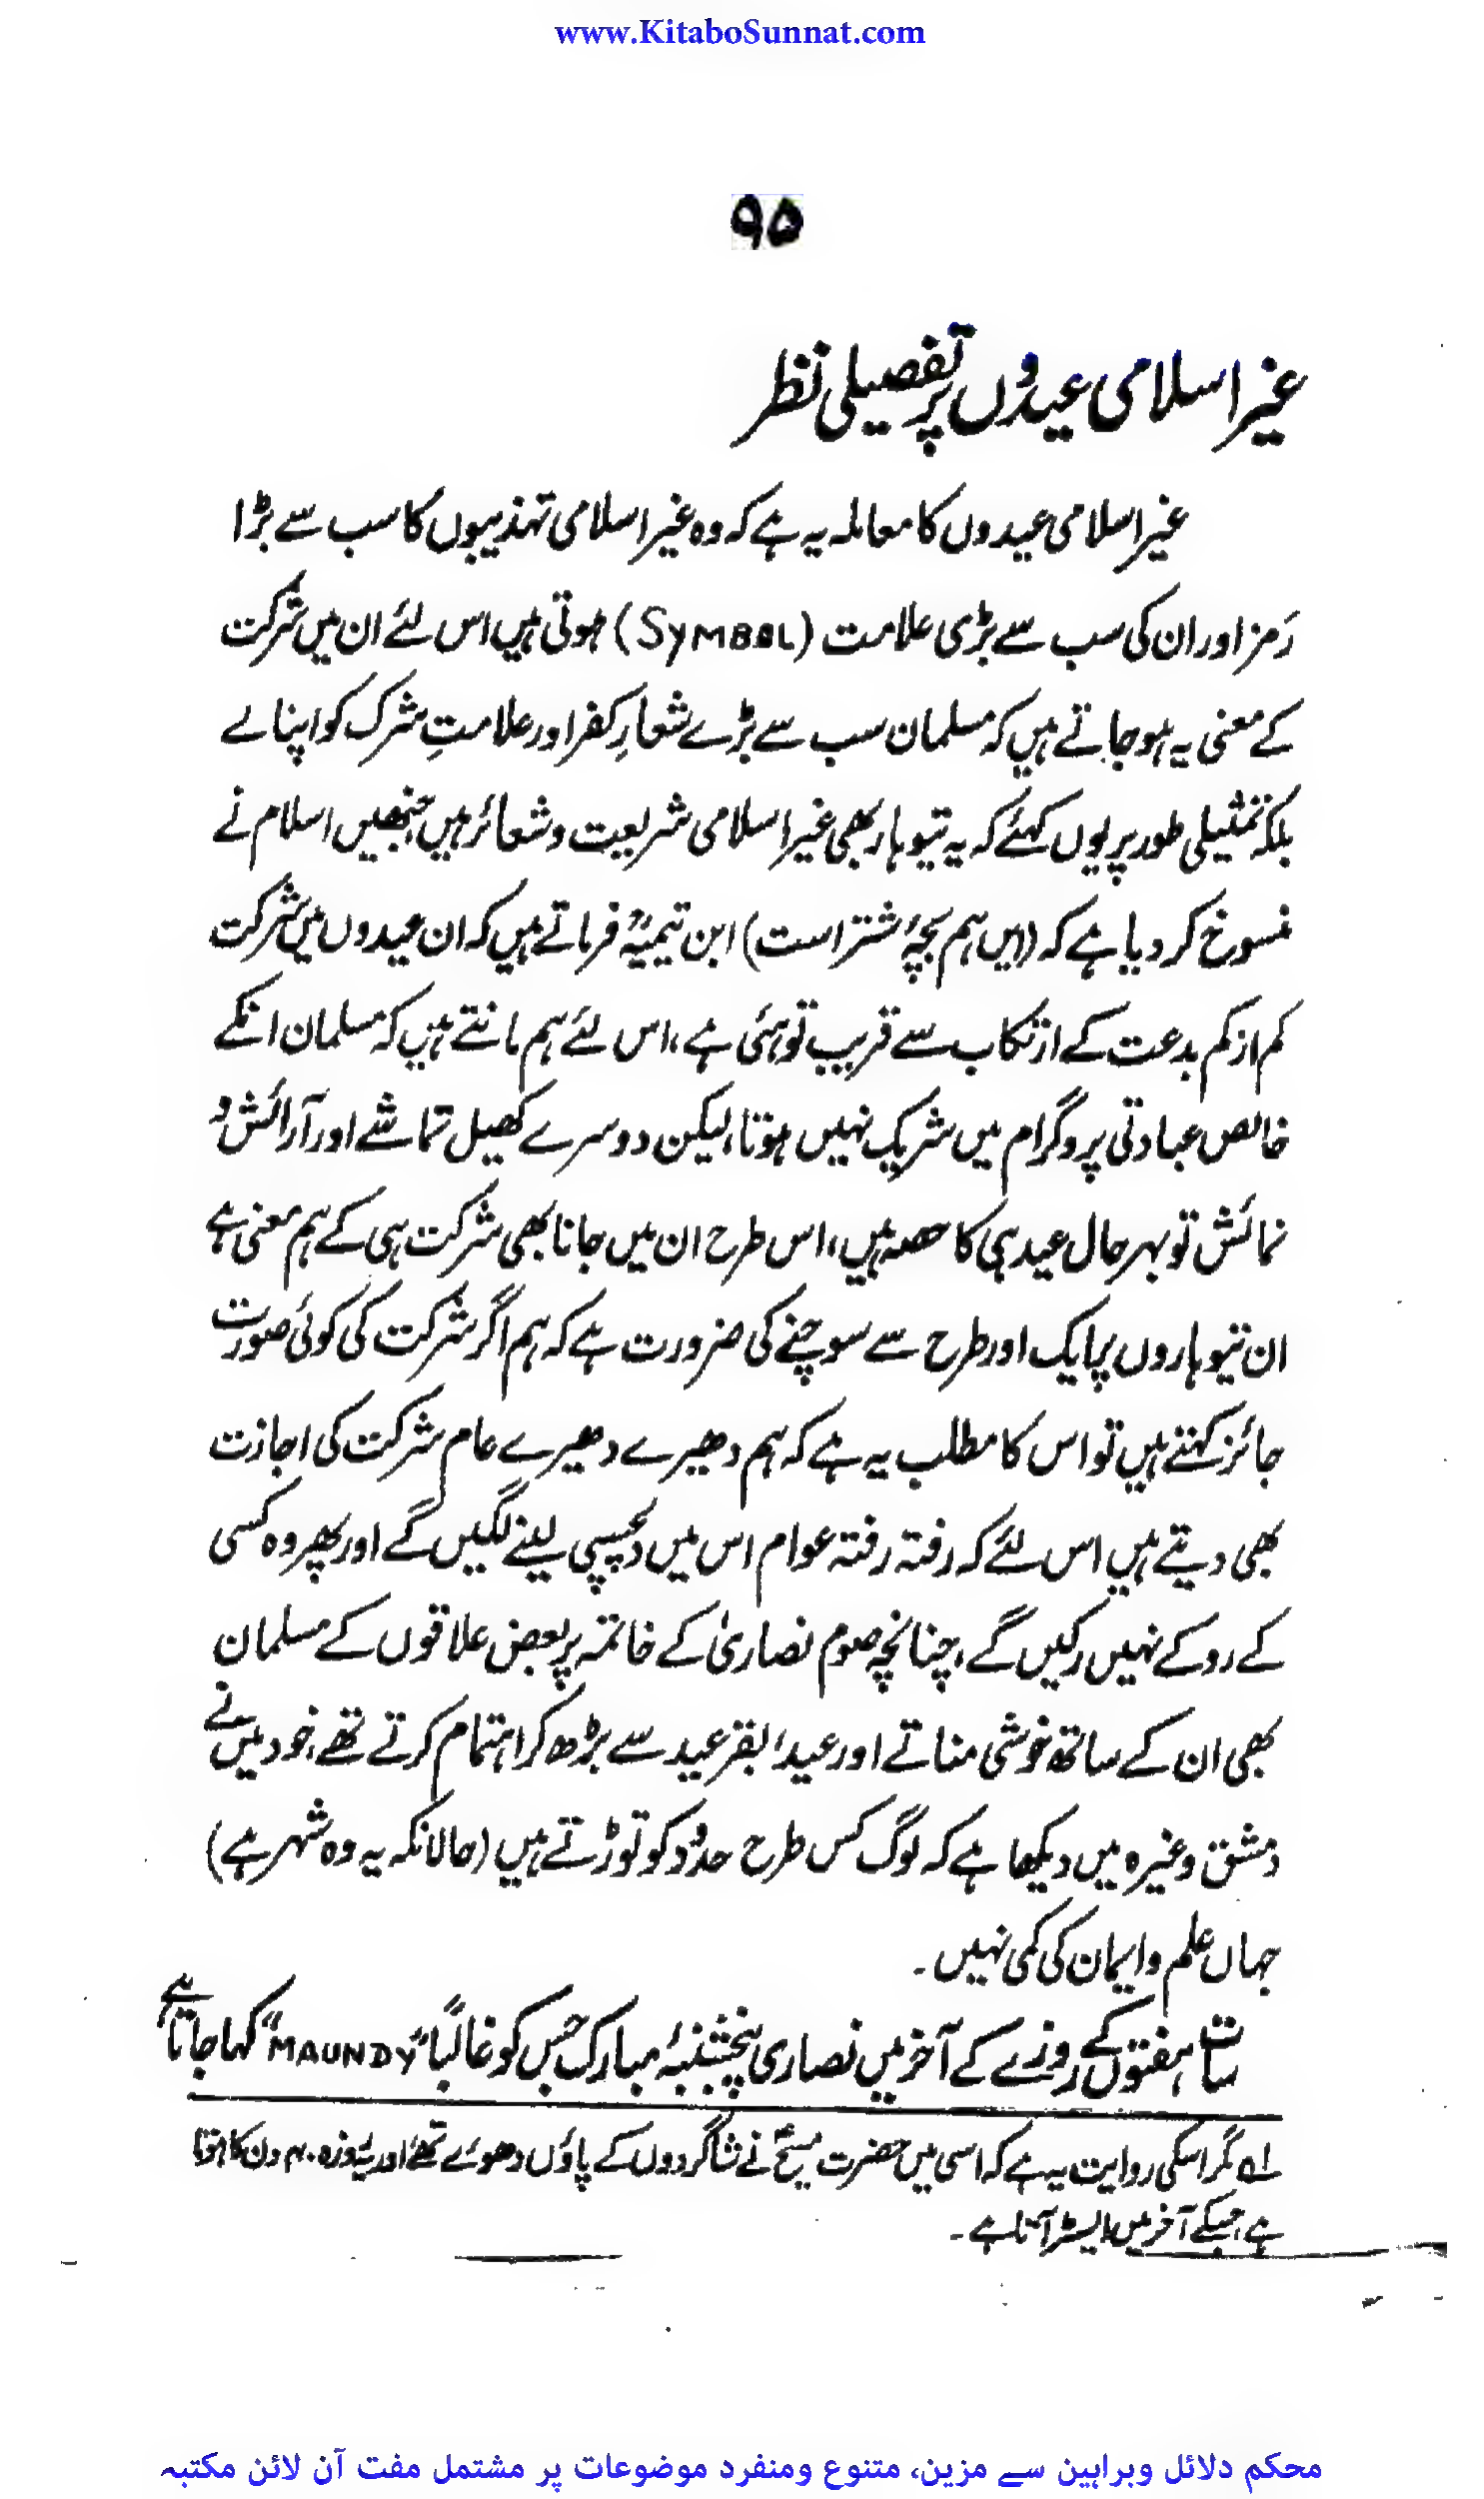 www.KitaboSunnat.com
۹۵
غیر اسلامی عیدوں پر تفصیلی نظر
غیر اسلامی عیدوں کا معاملہ یہ ہے کہ وہ غیر اسلامی تہذیبوں کا سب سے بڑا
رَمز اور ان کی سب سے بڑی علامت (SYMBOL) ہوتی ہیں اس لئے ان میں شرکت
کے معنی یہ ہو جاتے ہیں کہ مسلمان سب سے بڑے شعارِ کفر اور علامتِ شرک کو اپنا لے
بلکہ تمثیلی طور پر یوں کہئے کہ یہ تیوہار بھی غیر اسلامی شریعت و شعائر ہیں جنھیں اسلام نے
منسوخ کر دیا ہے کہ (ایں ہم بچۂ شتر است) ابن تیمیہؒ فرماتے ہیں کہ ان عیدوں میں شرکت
کم از کم بدعت کے ارتکاب سے قریب تو ہئی ہے، اس لئے ہم مانتے ہیں کہ مسلمان انکے
خالص عبادتی پروگرام میں شریک نہیں ہوتا، لیکن دوسرے کھیل تماشے اور آرائش و
نمائش تو بہر حال عید ہی کا حصہ ہیں، اس طرح ان میں جانا بھی شرکت ہی کے ہم معنی ہے
ان تیوہاروں پر ایک اور طرح سے سوچنے کی ضرورت ہے کہ ہم اگر شرکت کی کوئی صورت
جائز کہتے ہیں تو اس کا مطلب یہ ہے کہ ہم دھیرے دھیرے عام شرکت کی اجازت
بھی دیتے ہیں اس لئے کہ رفتہ رفتہ عوام اس میں دلچسپی لینے لگیں گے اور پھر وہ کسی
کے روکے نہیں رکیں گے، چنانچہ صوم نصاریٰ کے خاتمہ پر بعض علاقوں کے مسلمان
بھی ان کے ساتھ خوشی مناتے اور عید، بقر عید سے بڑھ کر اہتمام کرتے تھے، خود میں نے
دمشق وغیرہ میں دیکھا ہے کہ لوگ کس طرح حدود کو توڑتے ہیں (حالانکہ یہ وہ شہر ہے)
جہاں علم و ایمان کی کمی نہیں۔
سات ہفتوں کے روزے کے آخر میں نصاری پنجشنبۂ مبارک جس کو غالبًا "MAUNDY" کہا جاتا ہے
لہ مگر اسکی روایت یہ ہے کہ اسی میں حضرت مسیحؑ نے شاگردوں کے پاؤں دھوئے تھے، اور یہ روزہ ۴۰ دن کا ہوتا
ہے، جسکے آخر میں ایسٹر آتا ہے۔
محکم دلائل وبراہین سے مزین، متنوع ومنفرد موضوعات پر مشتمل مفت آن لائن مکتبہ